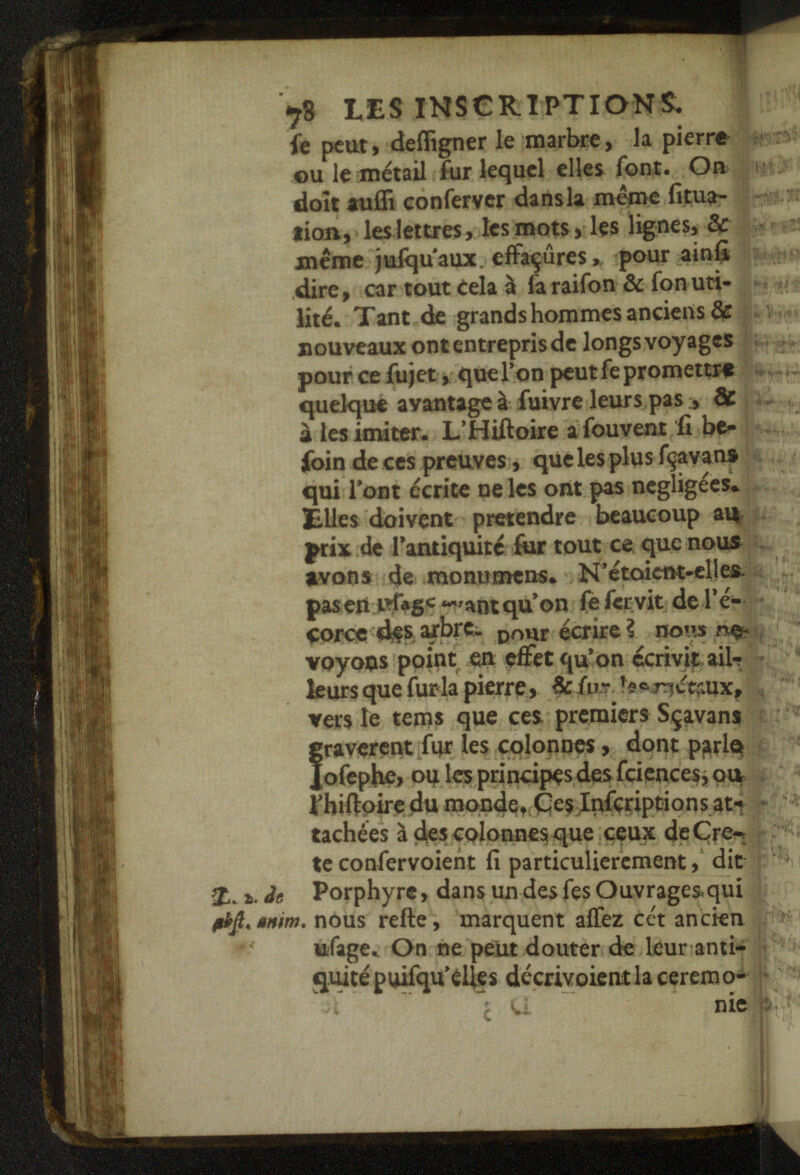 78 LES INSCRIPTIONS.
ſe peut, deſſigner le marbre, la pierre
ou le métail ſur lequel elles ſont. On
doit auſſi conſerver dans la même ſitua-
tion, les lettres, les mots, les lignes, &
même juſqu'aux effaçûres, pour ainſi
dire, car tout cela à ſa raiſon & ſon uti-
lité. Tant de grands hommes anciens &
nouveaux ont entrepris de longs voyages
pour ce ſujet, que l'on peut ſe promettre
quelque avantage à ſuivre leurs pas, &
à les imiter. L'Hiſtoire a ſouvent ſi be-
ſoin de ces preuves, que les plus ſçavans
qui l'ont écrite ne les ont pas negligées.
Elles doivent pretendre beaucoup au
prix de l'antiquité ſur tout ce que nous
avons de monumens. N'étoient-elles
pas en uſage avant qu'on ſe ſervit de l'é-
çorce des arbre- pour écrire? nous ne
voyons point en effet qu'on écrivit ail-
leurs que ſur la pierre, & ſur les métaux,
vers le tems que ces premiers Sçavans
graverent ſur les colonnes, dont parle
Joſephe, ou les principes des ſciences, ou
l'hiſtoire du monde. Ces Inſcriptions at-
tachées à des colonnes que ceux de Cre-
te conſervoient ſi particulierement, dit
L. 2. de Porphyre, dans un des ſes Ouvrages qui
abſt. anim. nous reſte, marquent aſſez cét ancien
uſage. On ne peut douter de leur anti-
quité puiſqu'elles décrivoient la ceremo-
nie